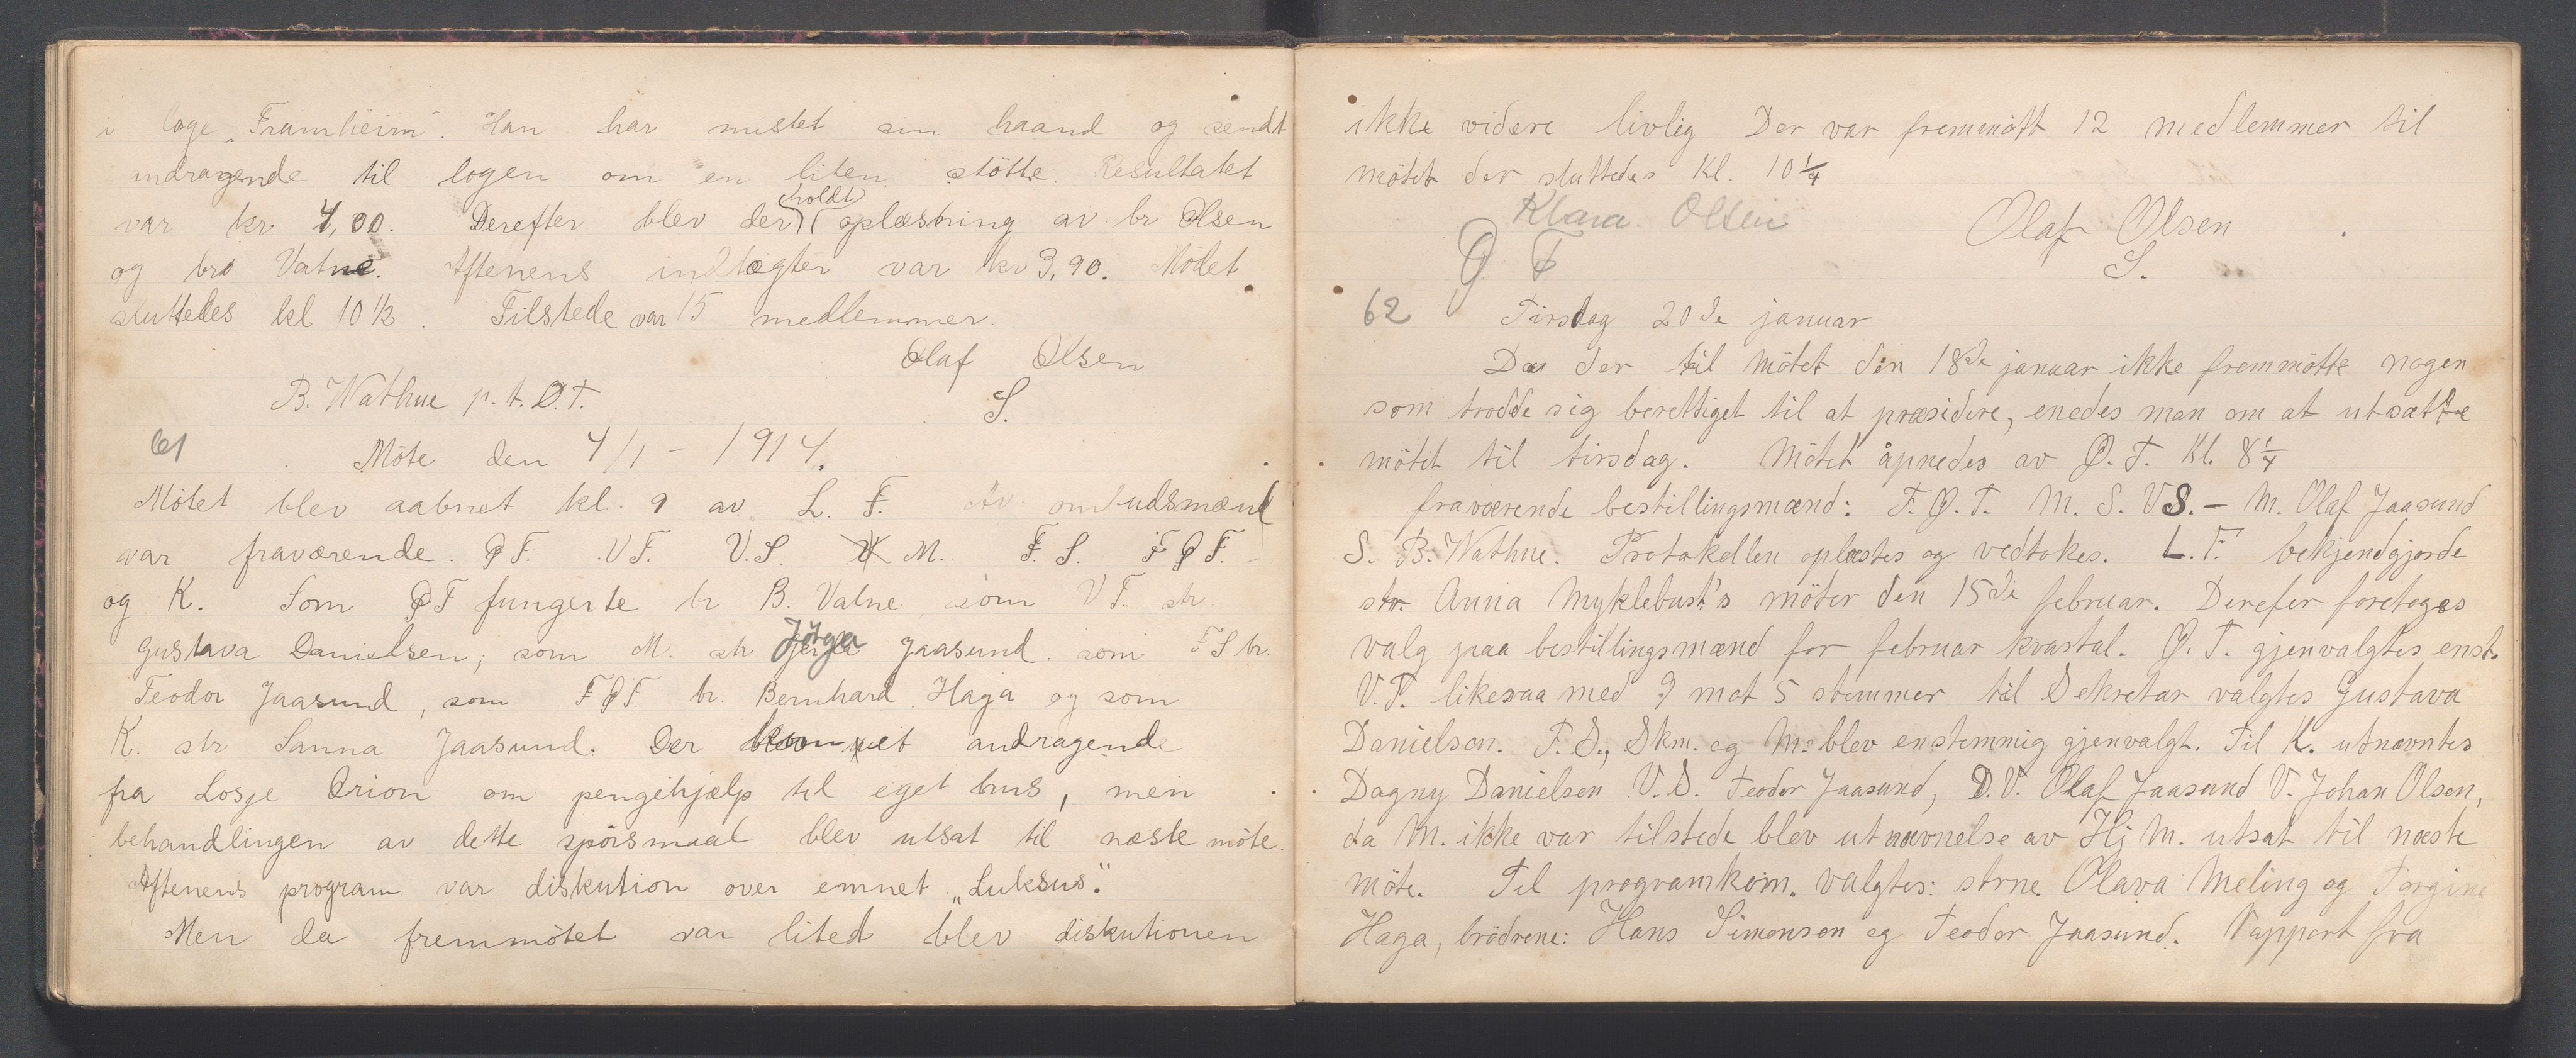 i loge „Framheim". Han har mistet sin haand og sendt
andragende til logen om en liten støtte. Resultatet
var kr 4,00. Derefter blev der holdt oplæsning av br Olsen
og br Vatne. Aftenens indtægter var kr 3,90. Mødet
sluttedes kl 10 1/2. Tilstede var 15 medlemmer.
Olaf Olsen
B. Wathne p.t. Ø.T.
S.
61
Möte den 4/1 - 1914.
Mötet blev aabnet kl. 9 av L. T. Av ombudsmænd
var fraværende. ØT. VT. V.S. M. F.S. FØT.
og K. Som ØT fungerte br B. Vatne som VT. str
Gustava Danielsen, som M. str Jørga Jaasund. som FS br.
Teodor Jaasund, som FØT. br. Bernhard Haga og som
K. str Sanna Jaasund. Der kom et andragende
fra Losje Orion om pengehjælp til eget hus, men
behandlingen av dette spörsmaal blev utsat til næste möte.
Aftenens program var diskution over emnet „Luksus".
Men da fremmötet var litedt blev diskutionen
ikke videre livlig Der var fremmött 12 medlemmer til
mötet der sluttedes Kl. 10 1/4
Klara Olsen Olaf Olsen
Ø T S.
62 Tirsdag 20de januar
Daa der til mötet den 18de januar ikke fremmötte nogen
som trodde sig berettiget til at præsidere, enedes man om at utsætte
mötet til tirsdag. Mötet åpnedes av Ø.T. Kl. 8 1/4
fraværende bestillingsmænd: F.Ø.T. M. S. VS. – M. Olaf Jaasund
S. B. Wathne. Protokollen oplæstes og vedtokes. L.T. bekjendgjorde
str. Anna Myklebust's möter den 15de februar. Derefer foretoges
valg paa bestillingsmænd for februar kvartal. Ø.T. gjenvalgtes enst.
V.T. likesaa med 9 mot 5 stemmer til Sekretær valgtes Gustava
Danielsen. F.S., Skm. og M. blev enstemmig gjenvalgt. Til K. utnævntes
Dagny Danielsen V.S. Teodor Jaasund, D.V. Olaf Jaasund V. Johan Olsen,
da M. ikke var tilstede blev utnævnelse av Hj M. utsat til næste
möte. Til programkom. valgtes: strne Olava Meling og Torgine
Haga, brödrene: Hans Simonsen og Teodor Jaasund. Rapport fra